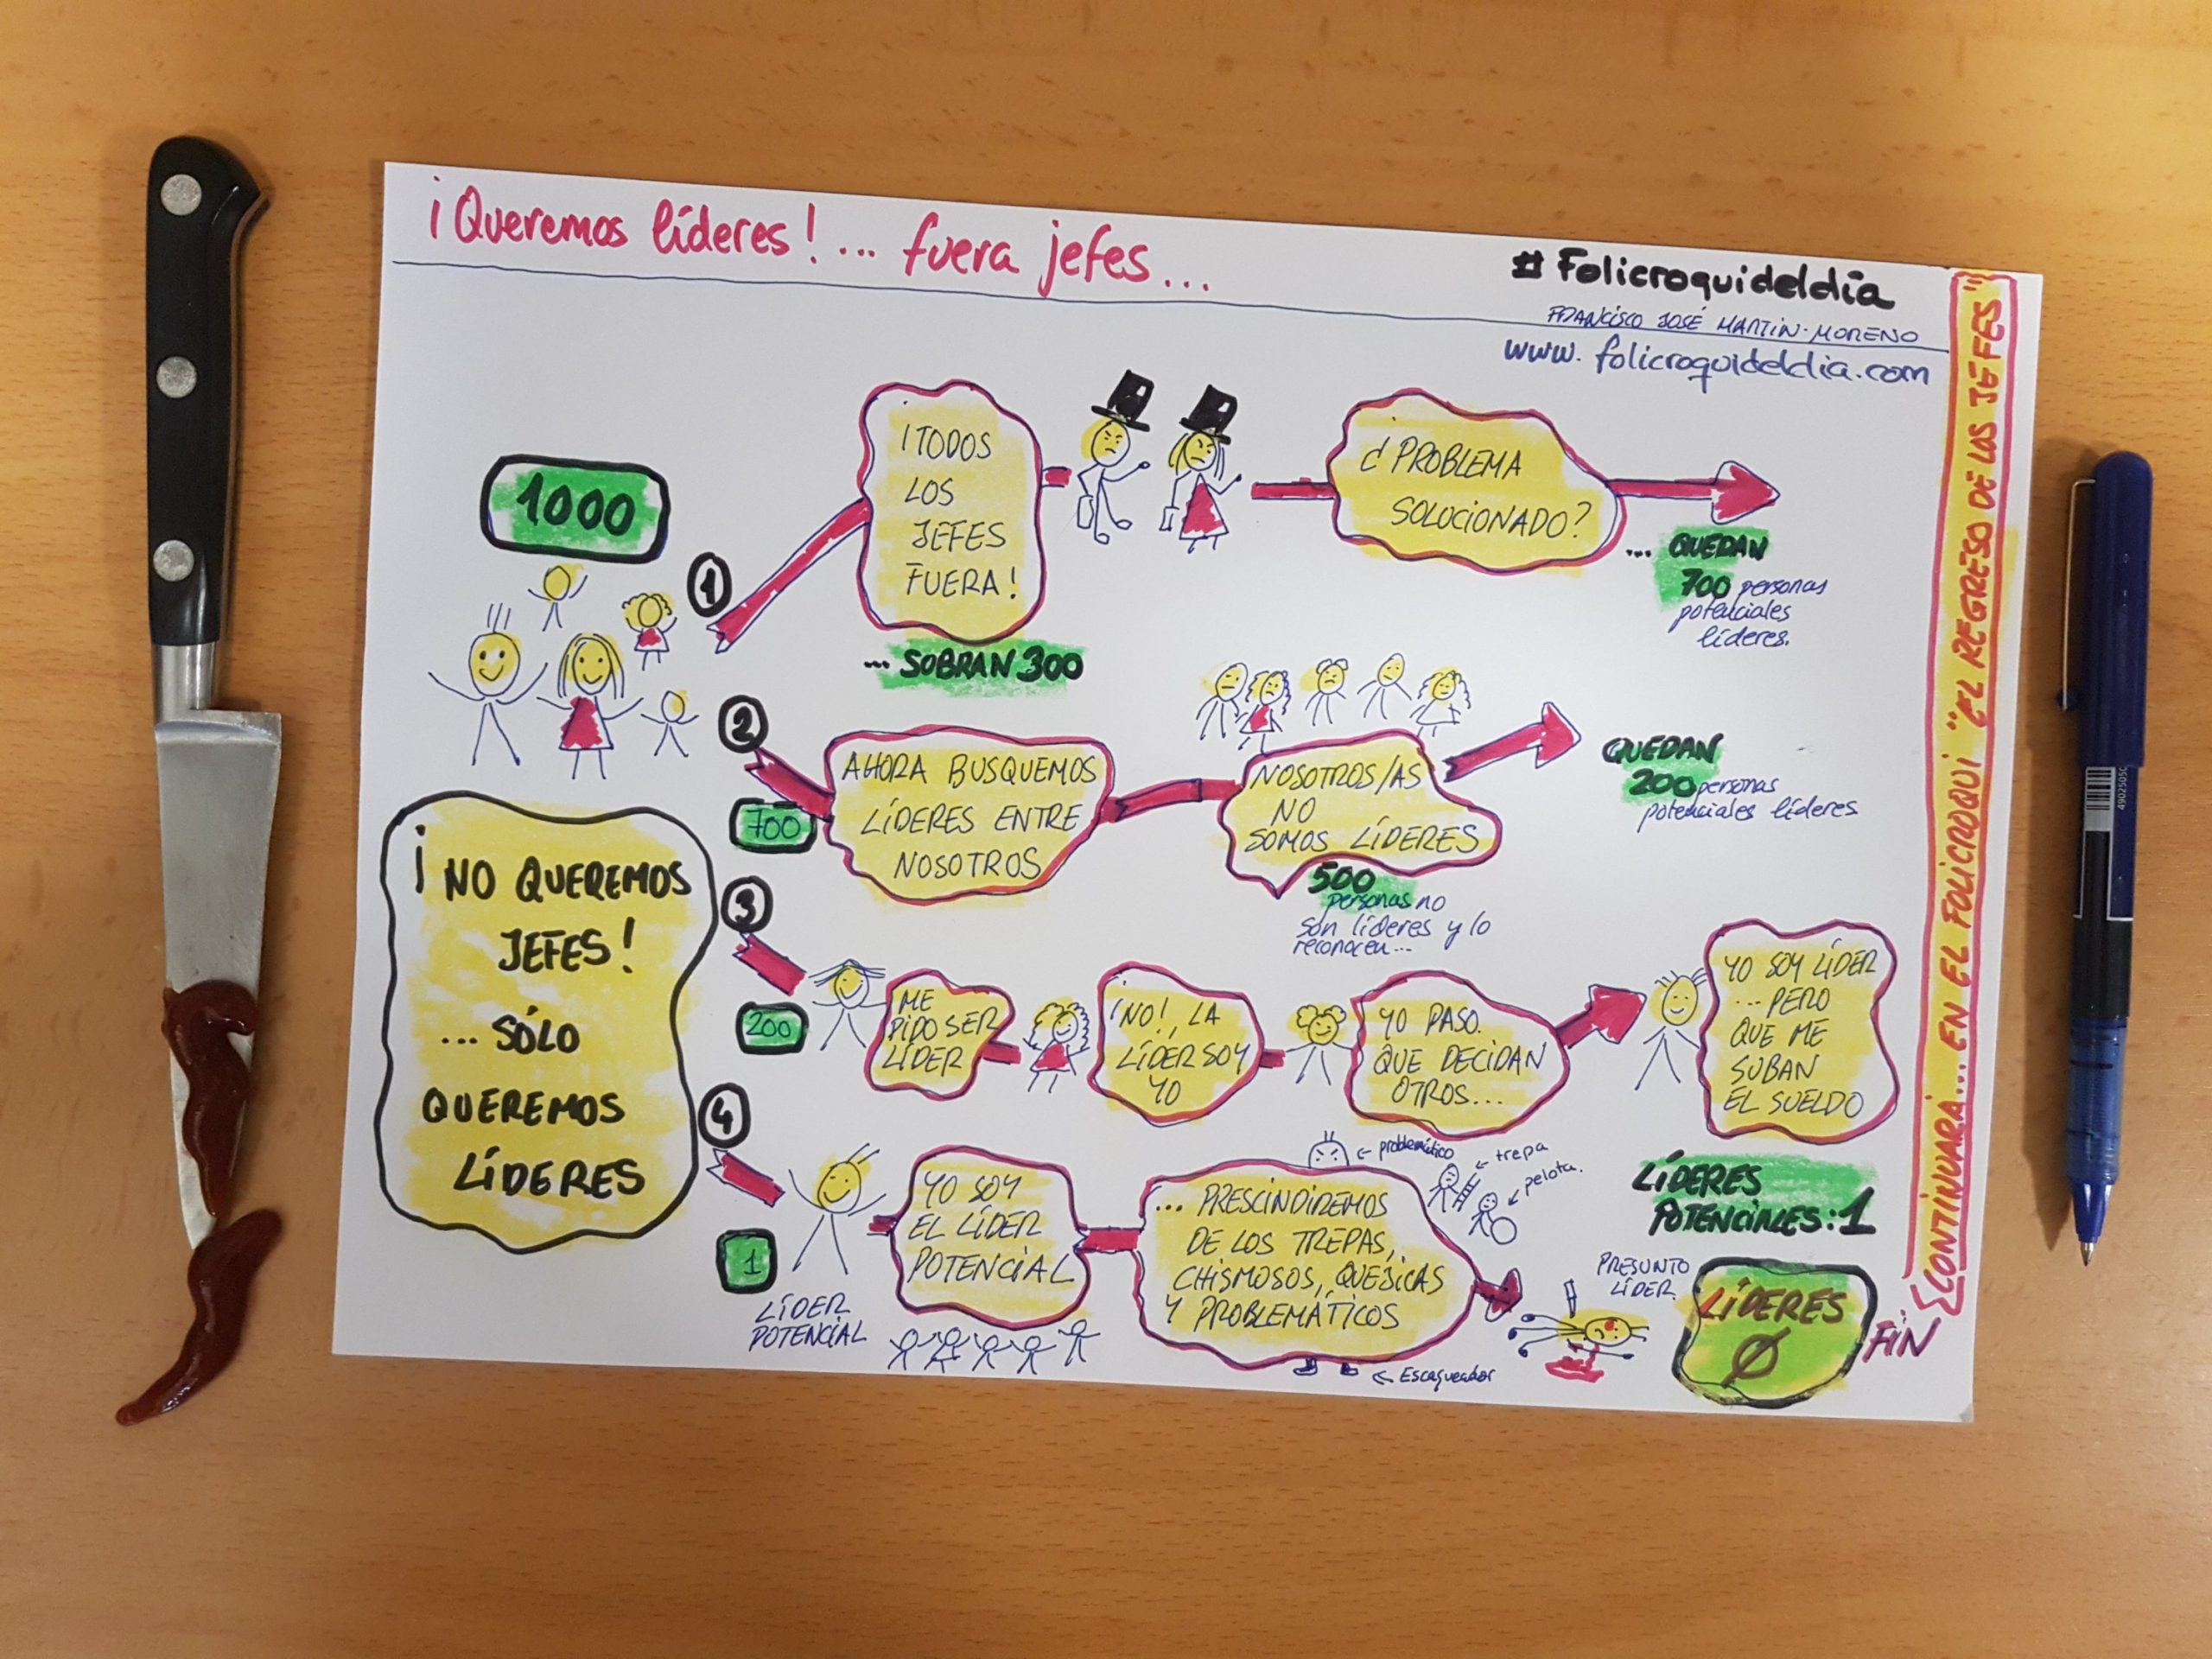 ¡Queremos líderes!... fuera jefes...
#Folicroquideldía
FRANCISCO JOSÉ MARTÍN-MORENO
www.folicroquideldia.com
1000
¡NO QUEREMOS
JEFES!
... SÓLO
QUEREMOS
LÍDERES
1
¡TODOS
LOS
JEFES
FUERA!
... SOBRAN 300
¿PROBLEMA
SOLUCIONADO?
... QUEDAN
700 personas
potenciales
líderes.
2
700
AHORA BUSQUEMOS
LÍDERES ENTRE
NOSOTROS
NOSOTROS/AS
NO
SOMOS LÍDERES
500
personas no
son líderes y lo
reconocen...
QUEDAN
200 personas
potenciales líderes
3
200
ME
PIDO SER
LÍDER
¡NO!, LA
LÍDER SOY
YO
YO PASO.
QUE DECIDAN
OTROS...
YO SOY LÍDER
... PERO
QUE ME
SUBAN
EL SUELDO
LÍDERES
POTENCIALES: 1
4
1
LÍDER
POTENCIAL
YO SOY
EL LÍDER
POTENCIAL
... PRESCINDIREMOS
DE LOS TREPAS,
CHISMOSOS, QUEJICAS
Y PROBLEMÁTICOS
problemático
trepa
pelota.
Escaqueador
PRESUNTO
LÍDER.
LÍDERES
Ø
FIN
CONTINUARÁ... EN EL FOLICROQUI "EL REGRESO DE LOS JEFES"
4902505